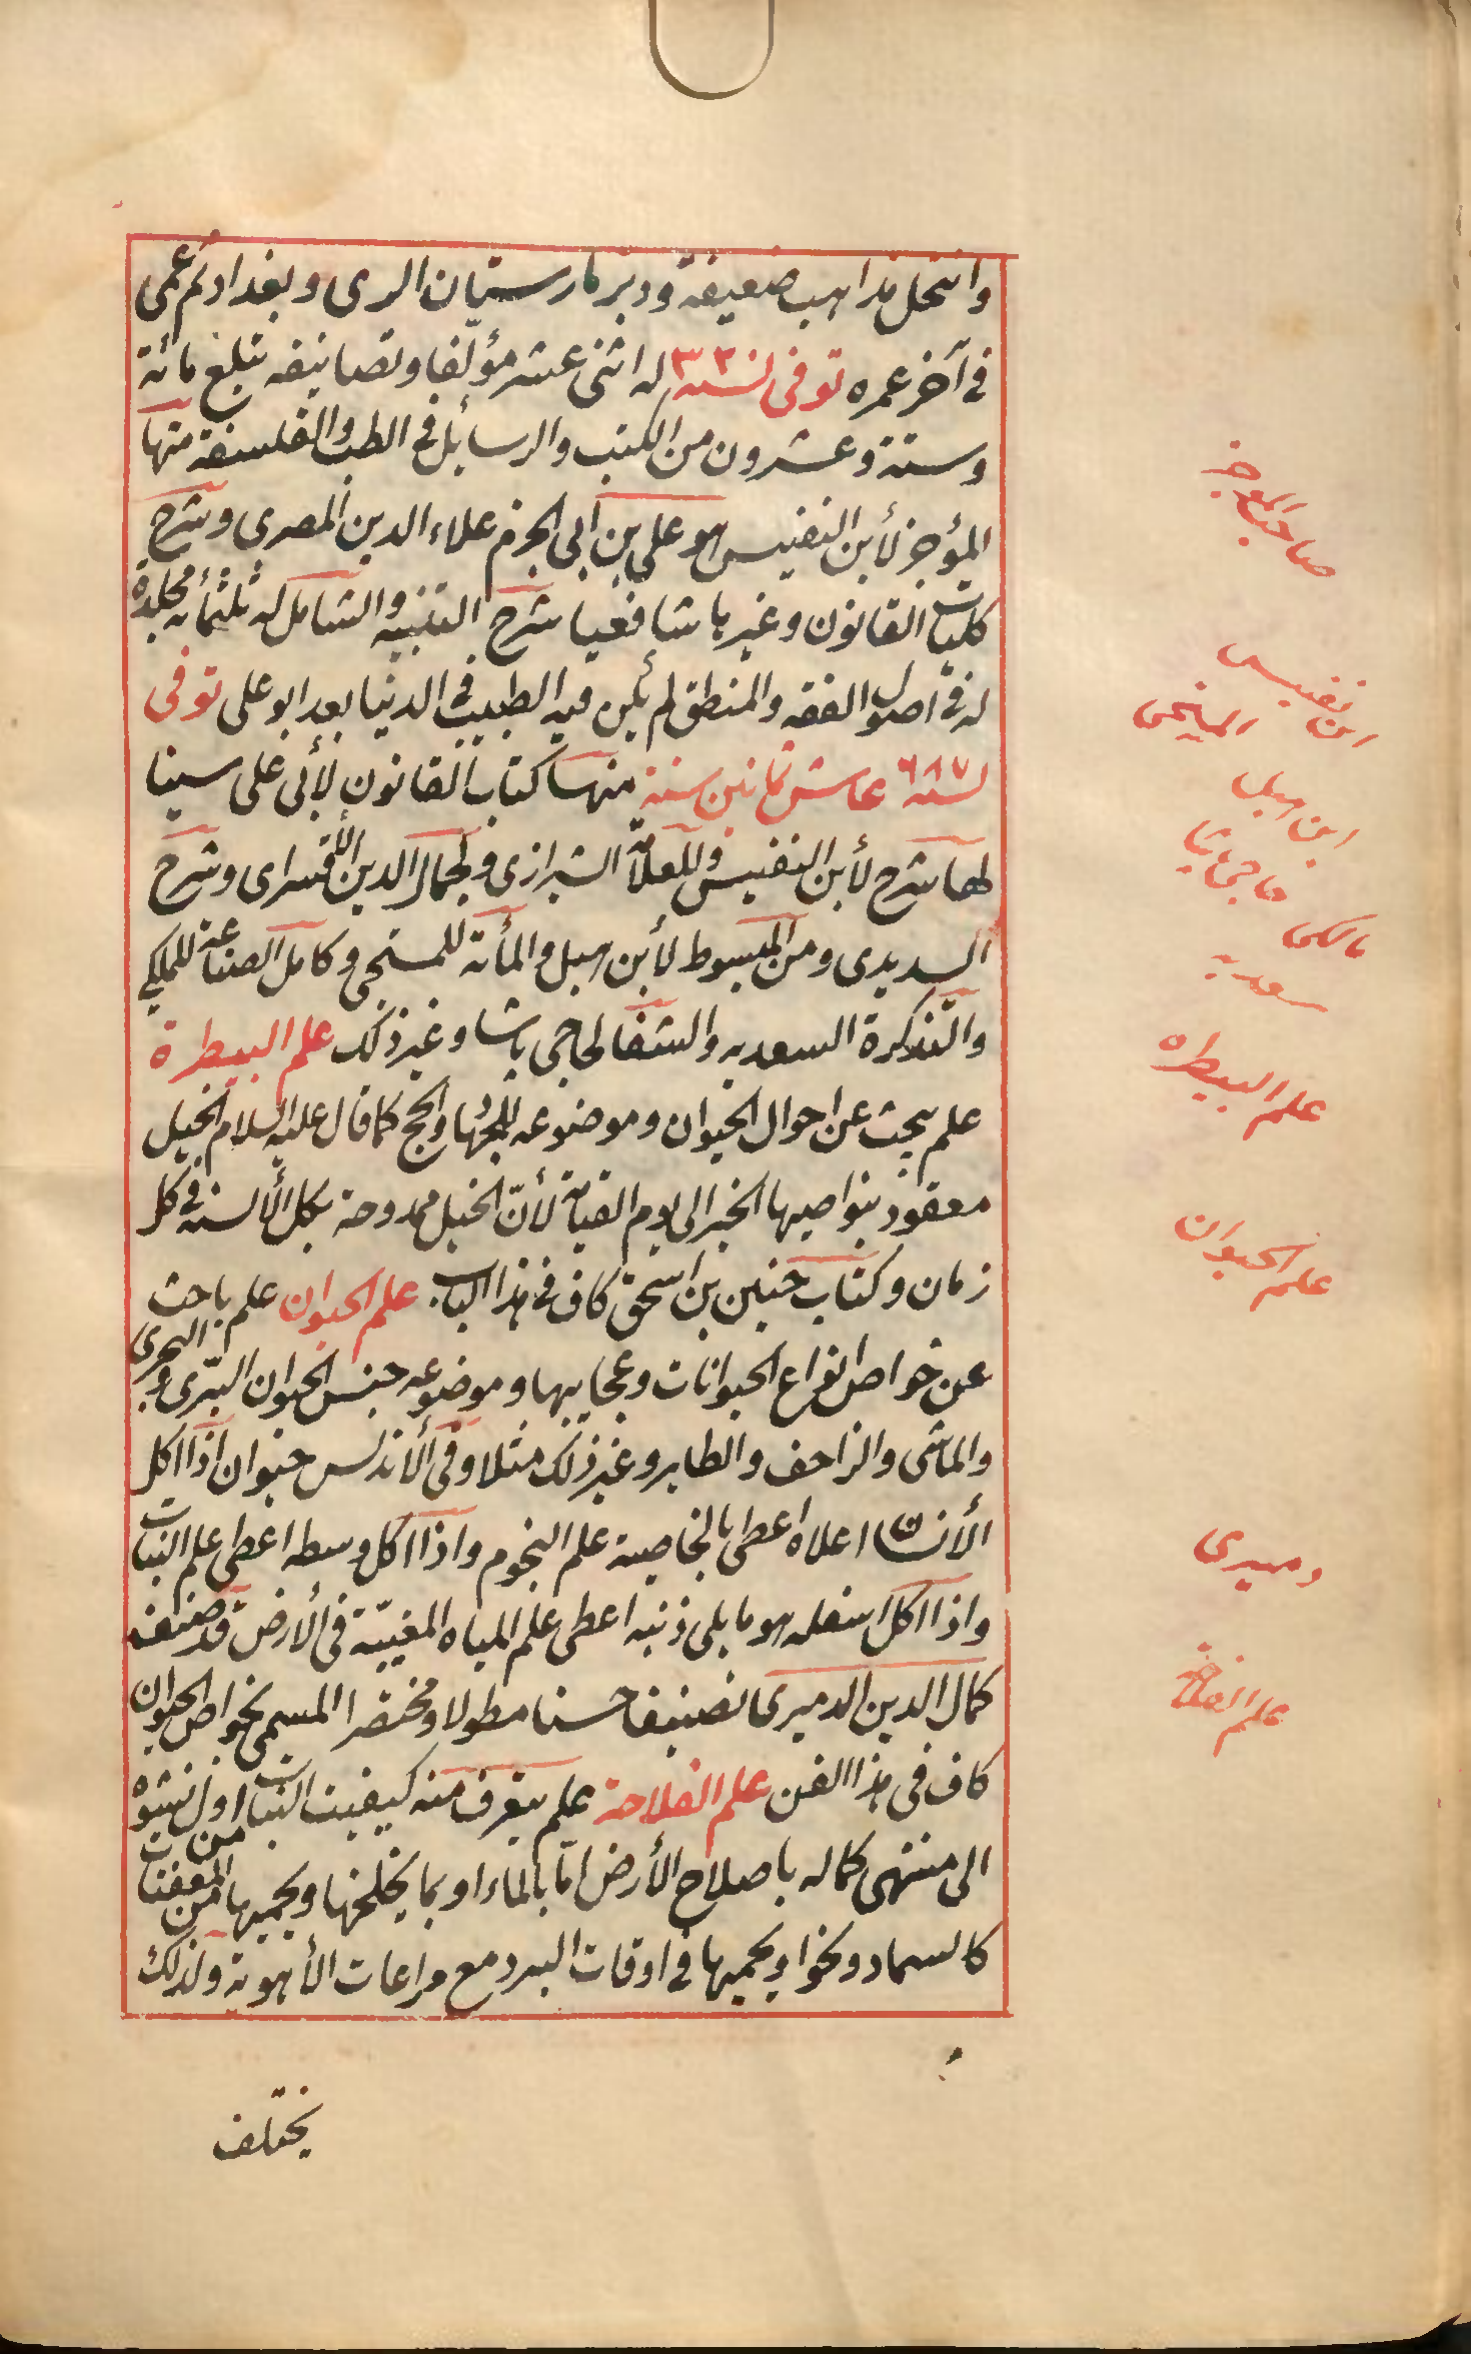 وانتحل مذاهب ضعيفة ودبر مارستان الرى وبغداد ثم عمى
فى آخر عمره توفى سنه ٣٢ له اثنى عشر مؤلفا وتصانيفه تبلغ مائة
وستة وعشرون من الكتب والرسائل فى الطب والفلسفة منها
المؤجز لأبن النفيس هو على بن ابى الحزم علاء الدين المصرى وشرح
كليات القانون وغيرها شافعيا شرح التنبيه والشامل له ثلثمأئه مجلدة
له فى اصول الفقه والمنطق لم يكن فيه الطبيب فى الدنيا بعد ابو على توفى
سنه ٦٨٧ عاش ثمانين سنة منها كتاب القانون لأبى على سينا
لها شرح لأبن النفيس وللعلامة الشيرازى ولجمال الدين الأقسراى وشرح
السديدى ومن المبسوط لأبن هبل والمأئة للمسيحى وكامل الصناعة للملكى
والتذكرة السعديه والشفا لحاجى باشا وغير ذلك علم البيطرة
علم يبحث عن احوال الحيوان وموضوعه للجهاد والحج كما قال عليه السلام الخيل
معقود بنواصيها الخير الى يوم القيامة لأن الخيل ممدوحة بكل الألسنه فى كل
زمان وكتاب حنين بن اسحق كاف فى هذا الباب علم الحيوان علم باحث
عن خواص انواع الحيوانات وعجايبها وموضوعه جنس الحيوان البرى والبحرى
والماشى والزاحف والطاير وغير ذلك مثلا وفى الأندلس حيوان اذا اكل
الأنسان اعلاه اعطى بالخاصية علم النجوم واذا اكل وسطه اعطى علم النبات
واذا اكل اسفله هو ما يلى ذنبه اعطى علم المياه المغيبة فى الأرض قد صنف
كمال الدين الدميرى تصنيفا حسنا مطولا ومختصرا المسمى بخواص الحيوان
كاف فى هذا الفن علم الفلاحة علم يتعرف منه كيفيت النبات من اول نشوه
الى منتهى كماله باصلاح الأرض اما بالماء او بما يخلخلها ويحميها من المعفنات
كالسماد ونحوا ويحميها فى اوقات البرد مع مراعات الأهوية ولذلك
يختلف
صاحب الموجز
ابن نفيس
المسيحى
ابن هبل
حاجى باشا
مالكى
سعديه
علم البيطره
علم الحيوان
دميرى
علم الفلاحة